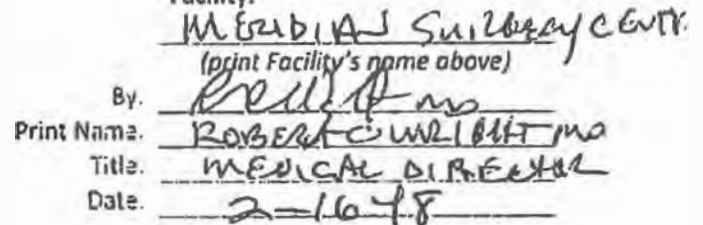 Facility:
MERIDIAN SURGERY CENTR
(print Facility's name above)
By.
Print Name. ROBERT C WRIGHT MD
Title. MEDICAL DIRECTOR
Date. 2-16-18